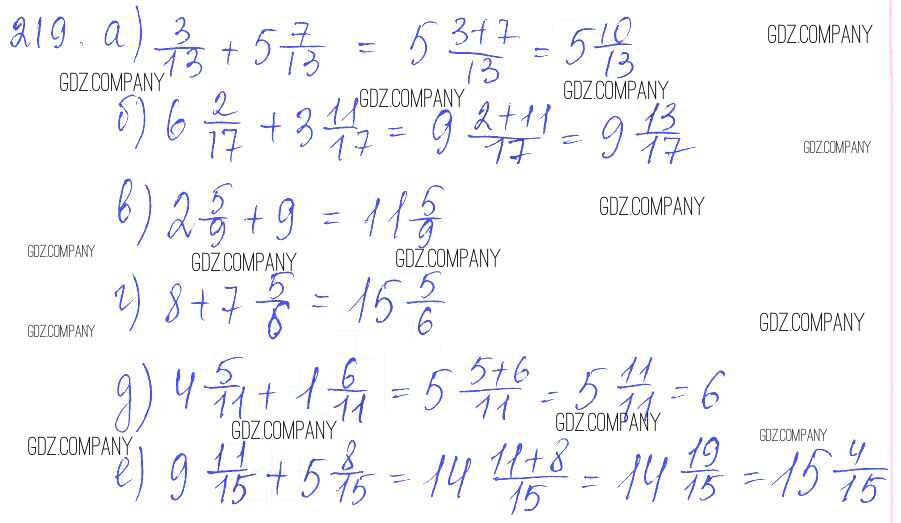 219. а) 3/13 + 5 7/13 = 5 (3+7)/13 = 5 10/13
GDZ.COMPANY
GDZ.COMPANY GDZ.COMPANY GDZ.COMPANY
б) 6 2/17 + 3 11/17 = 9 (2+11)/17 = 9 13/17
GDZ.COMPANY
в) 2 5/9 + 9 = 11 5/9
GDZ.COMPANY
GDZ.COMPANY GDZ.COMPANY GDZ.COMPANY
г) 8 + 7 5/6 = 15 5/6
GDZ.COMPANY GDZ.COMPANY
д) 4 5/11 + 1 6/11 = 5 (5+6)/11 = 5 11/11 = 6
GDZ.COMPANY GDZ.COMPANY GDZ.COMPANY GDZ.COMPANY
е) 9 11/15 + 5 8/15 = 14 (11+8)/15 = 14 19/15 = 15 4/15